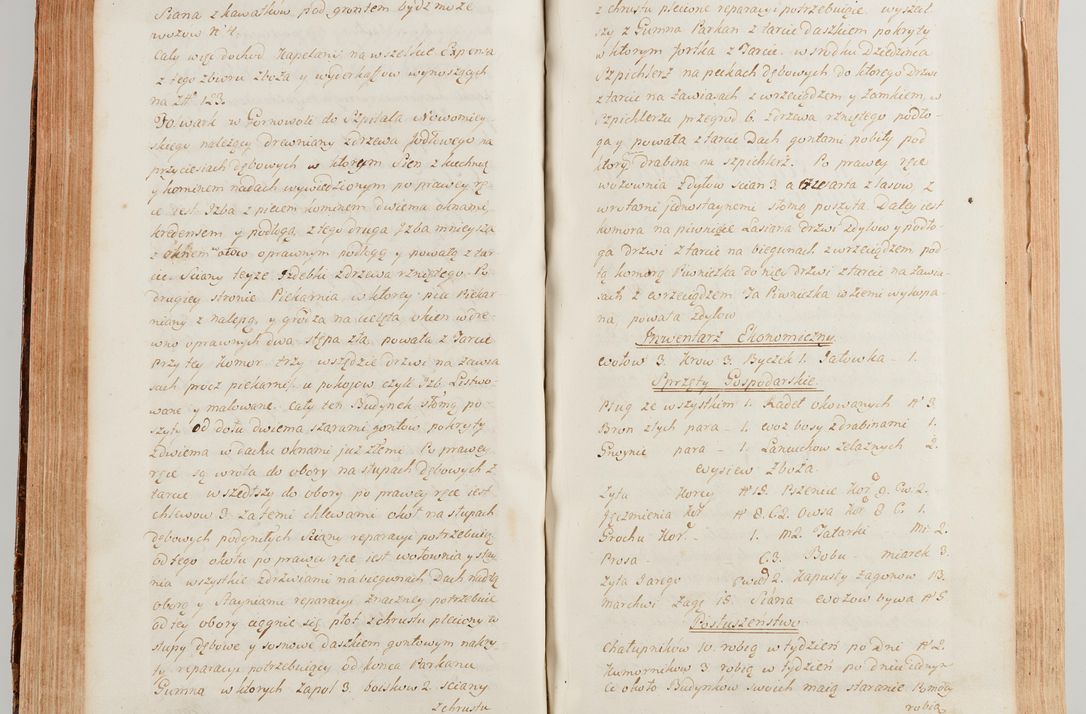 Siana z kawałkow pod gruntem bydź może
wozow N 4.
Cały więc dochod Kapelani na wszelkie Expensa
z tego zbioru zboża y wyderkafow wynoszących
na Zł 123.
Folwark w Gornowoli do Szpitala Nowomiey-
skiego należący drewniany z drzewa Jodłowego na
przyciesiach dębowych w ktorym Sień z kuchnią
y kominem na dach wywiedzionym po prawey rę-
ce iest Izba z piecem kominem dwiema oknami
kredensem y podłogą z tego druga Izba mnieysza
z oknem w ołow oprawnym podłogą y powałą z tar-
cic. Sciany teyże Izdebki z drzewa rzniętego. Po
drugiey stronie Piekarnia w ktorey piec Piekar-
niany z nalepą, y grodzą na cielęta okien w dre-
wno oprawnych dwa stępa zła powała z Tarcic
przy tey komor trzy wszędzie drzwi na zawia-
sach procz piekarni, u pokojow czyli Izb Listwo-
wane y malowane. Cały ten Budynek słomą po-
szyty od dołu dwiema szarami gontow pokryty
z dwiema w dachu oknami już złemi. Po prawey
ręce są wrota do obory na słupach dębowych z
tarcic wszedłszy do obory po prawey ręce iest
chlewow 3 za temi chlewami okoł na słupach
dębowych podgniłych Sciany reparacyi potrzebuią
od tego okołu po prawey ręce iest wołownia y stay-
nia wszystkie z drzwiami na biegunach Dach nad tą
oborą y Stayniami reparacyi znaczney potrzebuie
od tey obory ciągnie się płot z chrustu pleciony w
słupy dębowe y sosnowe daszkiem gontowym nakry-
ty reparacyi potrzebuiący od końca Parkanu
Gumna w ktorych zapol 3. boiskow 2. sciany
z chrustu
z chrustu plecione reparacyi potrzebuie wyszedł-
szy z Gumna Parkan z tarcic daszkiem pokryty
w ktorym fortka z Tarcic. w srodku Dziedzińca
Szpichlerz na peckach dębowych do ktorego drzwi
z tarcic na zawiasach z wrzeciądzem y zamkiem, w
Szpichlerzu przegrod 6. z drzewa rzniętego podło-
ga y powała z tarcic Dach gontami pobity pod
ktory drabina na szpichlerz. Po prawey ręce
wozownia z dylow scian 3 a czwarta z lasow, z
wrotami jednostaynemi słomą poszyta Daley iest
komora na piwnicze z ściana drzwi z dylow y podło-
ga drzwi z tarcic na biegunach z wrzeciądzem pod
tą komorą Piwniczka do niey drzwi z tarcic na zawia-
sach z wrzeciądzem Ta Piwniczka w ziemi wykopa-
na powała z dylow
Inwentarz Ekonomiczny
wołow 3. Krow 3. Byczek 1. Jałowka - 1.
Sprzęty Gospodarskie.
Pług ze wszystkim 1. Kadeł okowanych N 3.
Bron złych para - 1. woz bosy z drabinami 1.
Gnoynic para - 1. Łancuchow żelaznych 2.
wysiew zboża.
Żyta Korcy N 15. Pszenic Kor 8. Cw. 2.
Jęczmienia Kor N 8. C. 2. Owsa Kor 8 C. 1.
Grochu Kor. - 1. M 2. Tatarki - Mi 2.
Prosa - C. 3. Bobu - miarek 3.
Żyta Jarego Cwier 2. Kapusty Zagonow 13.
marchwi Zag 15. Siana wozow bywa N 5
Posłuszenstwo
Chałupnikow 10. robią w tydzień po Dni N 2.
Kumornikow 3 robią w tydzień po dniu iednym
te około Budynkow swoich maią staranie pomogą
robią